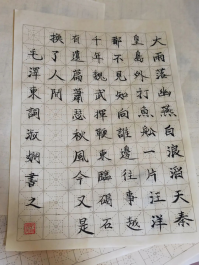 大雨落幽燕白浪滔天秦
皇島外打魚船一片汪洋
都不見知向誰邊往事越
千年魏武揮鞭東臨碣石
有遺篇蕭瑟秋風今又是
換了人間
毛澤東詞嫻書之